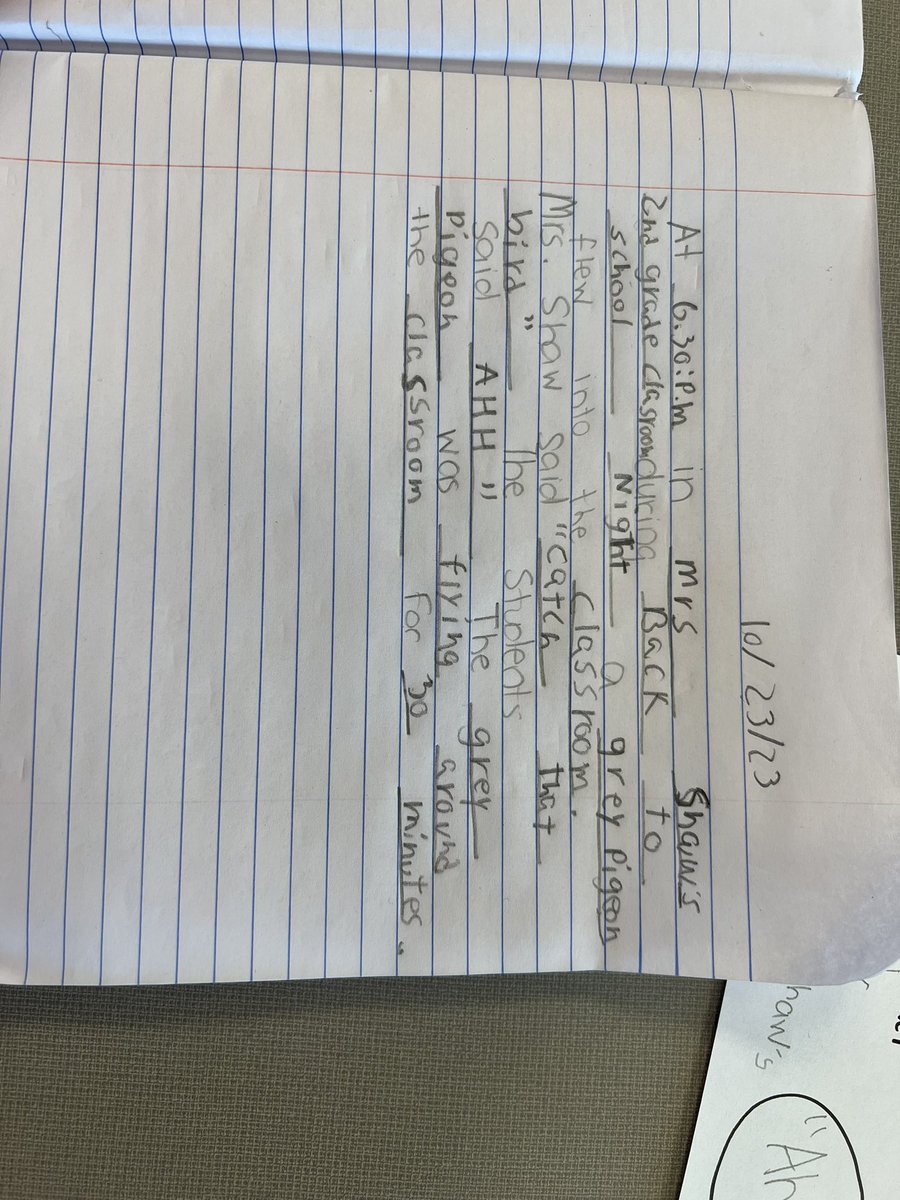 10/23/23
At 6.30:P.m in Mrs Shaw's
2nd grade clasroom during Back to
school Night a grey pigeon
flew into the classroom.
Mrs. Shaw said "catch that
bird" The Students
said AHH" The grey
pigeon was flying around
the classroom for 30 minutes.
haw's
"Ah